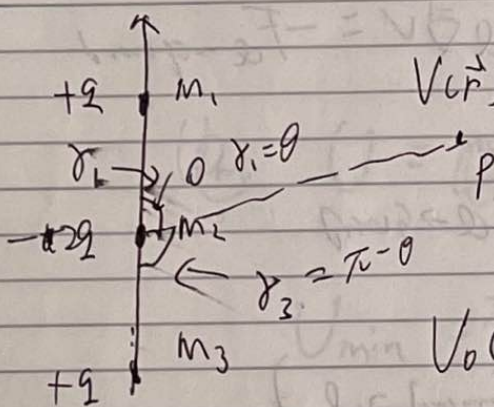 +q M₁ V(r⃗
γ₁ θ γ₁=θ
P
-2q M₂
γ₃ = π-θ
M₃ V₀(
+q